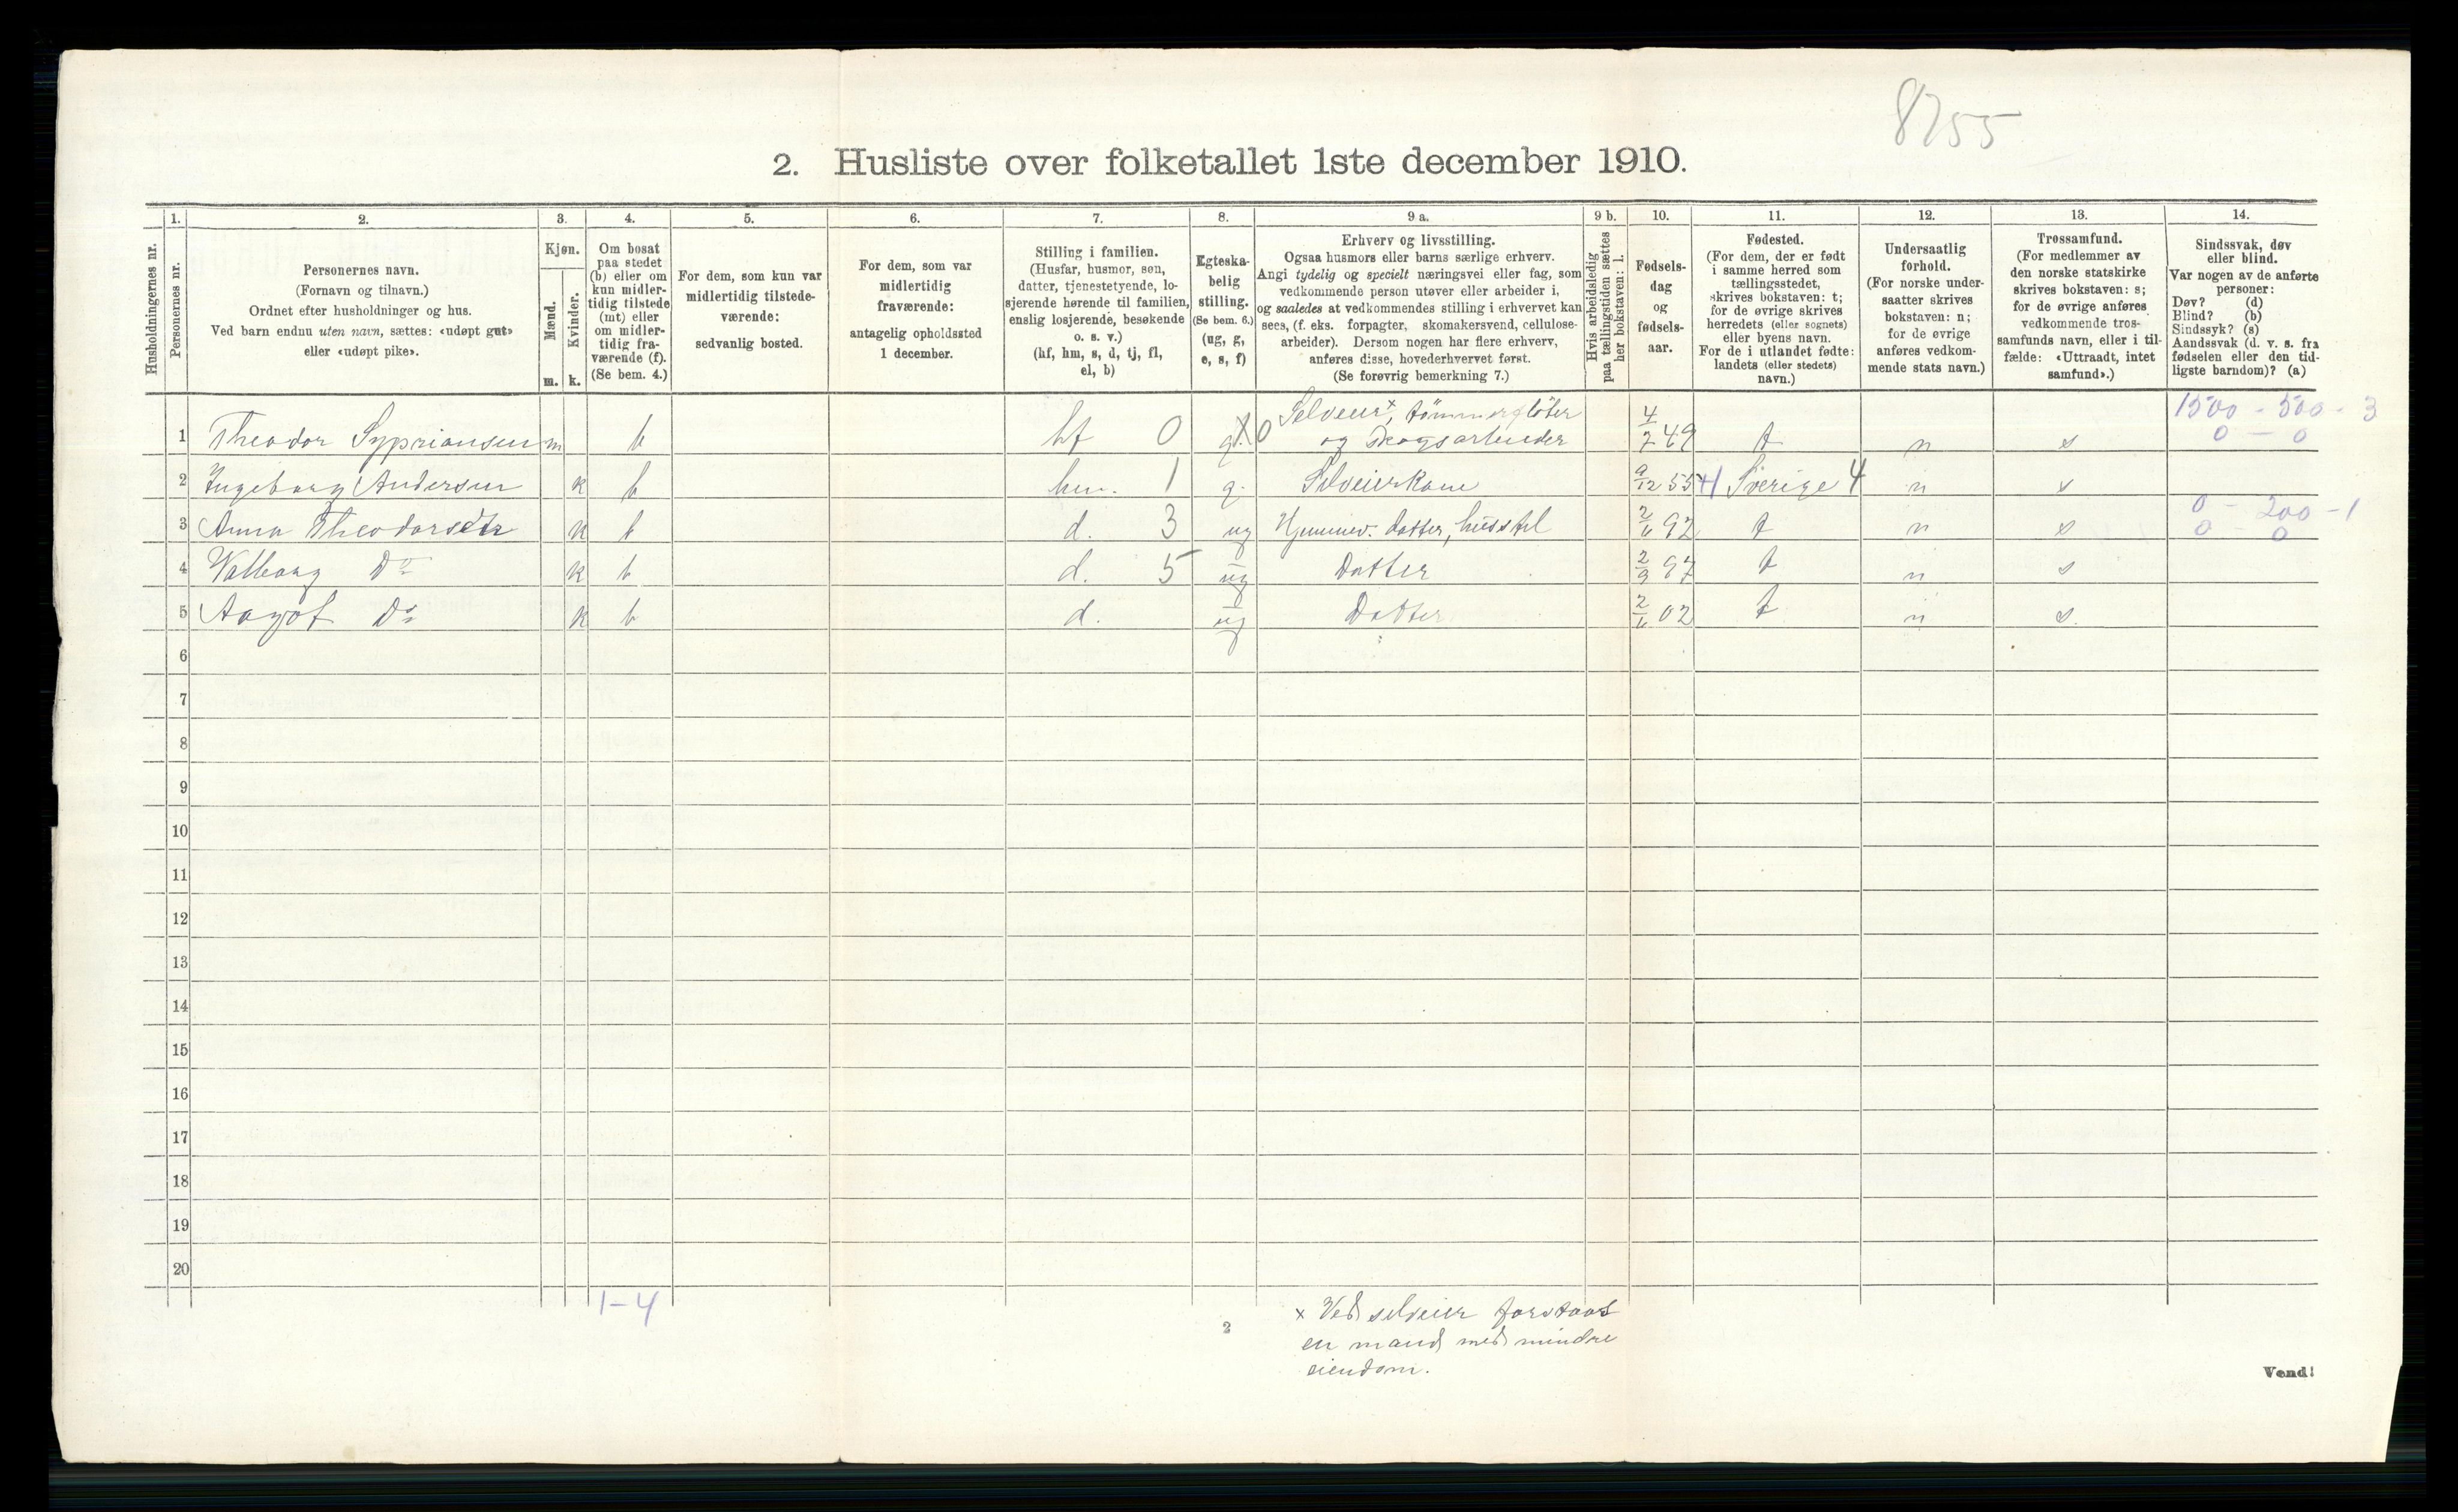 8755
2. Husliste over folketallet 1ste december 1910.
Husholdningernes nr.
1.
Personernes nr.
2.
Personernes navn.
(Fornavn og tilnavn.)
Ordnet efter husholdninger og hus.
Ved barn endnu uten navn, sættes: «udøpt gut»
eller «udøpt pike».
3.
Kjøn.
Mænd.
Kvinder.
m. k.
4.
Om bosat
paa stedet
(b) eller om
kun midler-
tidig tilstede
(mt) eller
om midler-
tidig fra-
værende (f).
(Se bem. 4.)
5.
For dem, som kun var
midlertidig tilstede-
værende:
sedvanlig bosted.
6.
For dem, som var
midlertidig
fraværende:
antagelig opholdssted
1 december.
7.
Stilling i familien.
(Husfar, husmor, søn,
datter, tjenestetyende, lo-
sjerende hørende til familien,
enslig losjerende, besøkende
o. s. v.)
(hf, hm, s, d, tj, fl,
el, b)
8.
Egteska-
belig
stilling.
(Se bem. 6.)
(ug, g,
e, s, f)
9 a.
Erhverv og livsstilling.
Ogsaa husmors eller barns særlige erhverv.
Angi tydelig og specielt næringsvei eller fag, som
vedkommende person utøver eller arbeider i,
og saaledes at vedkommendes stilling i erhvervet kan
sees, (f. eks. forpagter, skomakersvend, cellulose-
arbeider). Dersom nogen har flere erhverv,
anføres disse, hovederhvervet først.
(Se forøvrig bemerkning 7.)
9 b.
Hvis arbeidsledig
paa tællingstiden sættes
her bokstaven: l.
10.
Fødsels-
dag
og
fødsels-
aar.
11.
Fødested.
(For dem, der er født
i samme herred som
tællingsstedet,
skrives bokstaven: t;
for de øvrige skrives
herredets (eller sognets)
eller byens navn.
For de i utlandet fødte:
landets (eller stedets)
navn.)
12.
Undersaatlig
forhold.
(For norske under-
saatter skrives
bokstaven: n;
for de øvrige
anføres vedkom-
mende stats navn.)
13.
Trossamfund.
(For medlemmer av
den norske statskirke
skrives bokstaven: s;
for de øvrige anføres
vedkommende tros-
samfunds navn, eller i til-
fælde: «Uttraadt, intet
samfund».)
14.
Sindssvak, døv
eller blind.
Var nogen av de anførte
personer:
Døv? (d)
Blind? (b)
Sindssyk? (s)
Aandssvak (d. v. s. fra
fødselen eller den tid-
ligste barndom)? (a)
Selveier x, tømmerfløter 1500 - 500 - 3
1 Theodor Sypriansen m b hf 0 g. X0 og Skogsarbeider 4/7 49 t n s 0 - 0
2 Ingeborg Andersen k b hm. 1 g. Selveierkone 9/12 55 +1 Sverige 4 n s
3 Anna Theodorsdtr k b d. 3 ug Hjemmev. datter, husstel 2/6 92 t n s 0 - 200 - 1
0 - 0
4 Valborg Do k b d. 5 ug Datter 2/9 97 t n s
5 Aagot Do k b d. ug Datter 2/6 02 t n s.
6
7
8
9
10
11
12
13
14
15
16
17
18
19
20
1-4
x Ved selveier forstaaes
en mand med mindre
eiendom.
2
Vend!